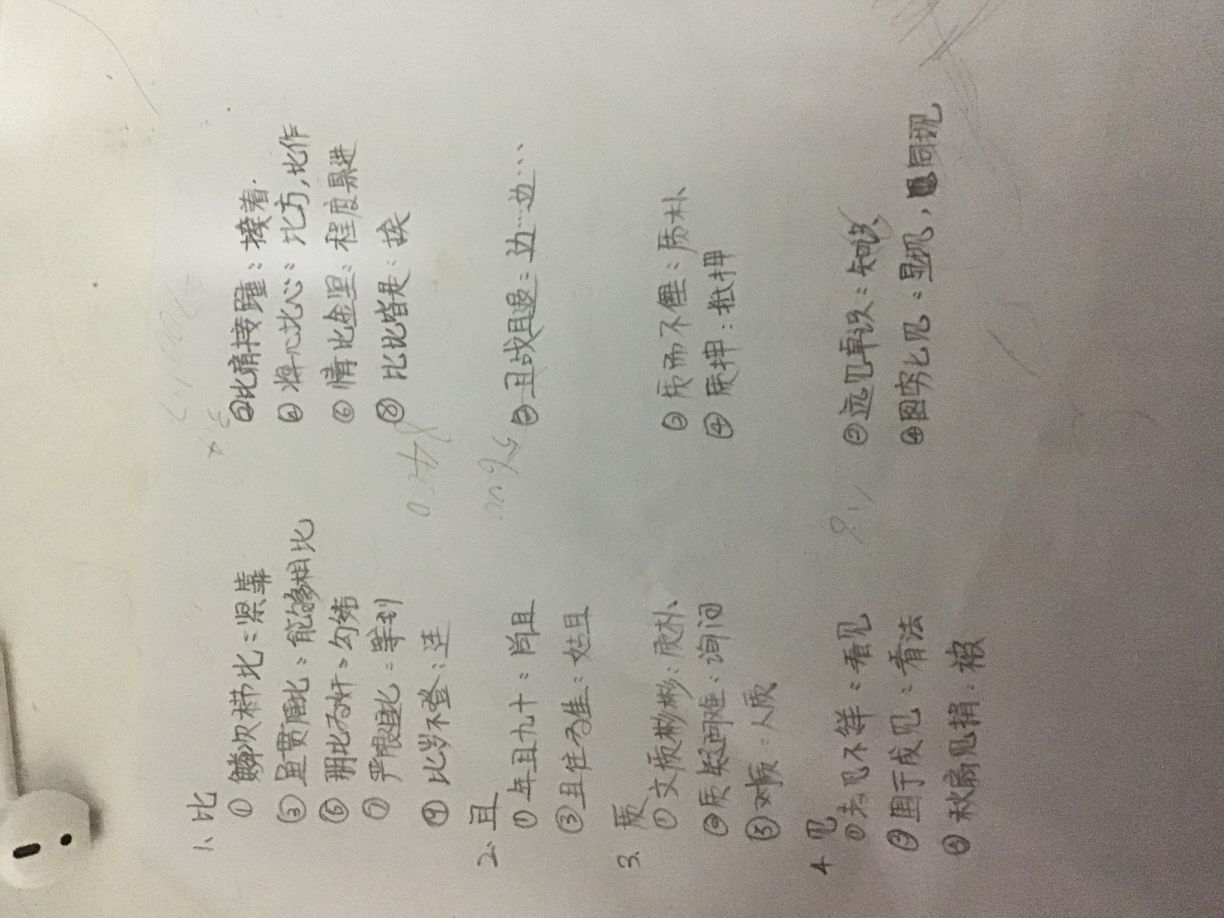 1、比
① 鳞次栉比：紧靠
②比肩接踵：挨着.
③ 鱼贯雁比：能够相比
④ 将心比心：比方,比作
⑤ 朋比为奸：勾结
⑥ 情比金坚：程度累进
⑦ 严限追比：等到
⑧ 比比皆是：挨
⑨ 比岁不登：连
2、且
① 年且九十：尚且
② 且战且退：边…边…
③且住为佳：姑且
3、质
① 文质彬彬：质朴
② 质而不俚：质朴
③质疑问难：询问
④ 质押：抵押
⑤对质：人质
4 见
①去见不祥：看见
②远见卓识：知识
③囿于成见：看法
④图穷匕见：显现，同现
⑤ 秋扇见捐：被